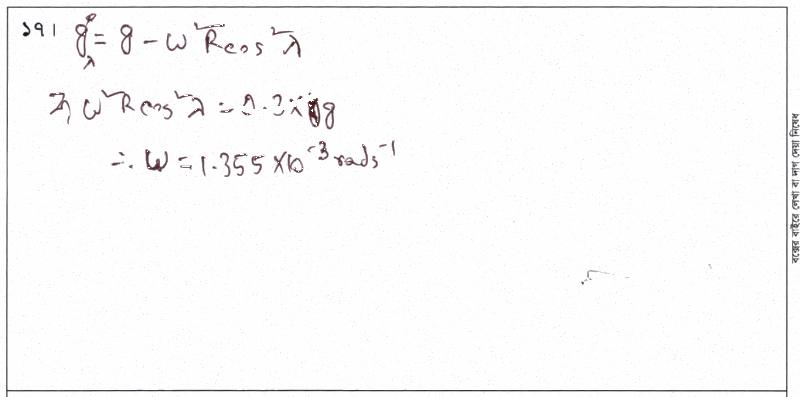 ১৭। g_λ = g - ω²Rcos²λ
⇒ ω²Rcos²λ = g
∴ ω = 1.355 × 10⁻³ rads⁻¹
বক্সের বাইরে লেখা বা দাগ দেয়া নিষেধ